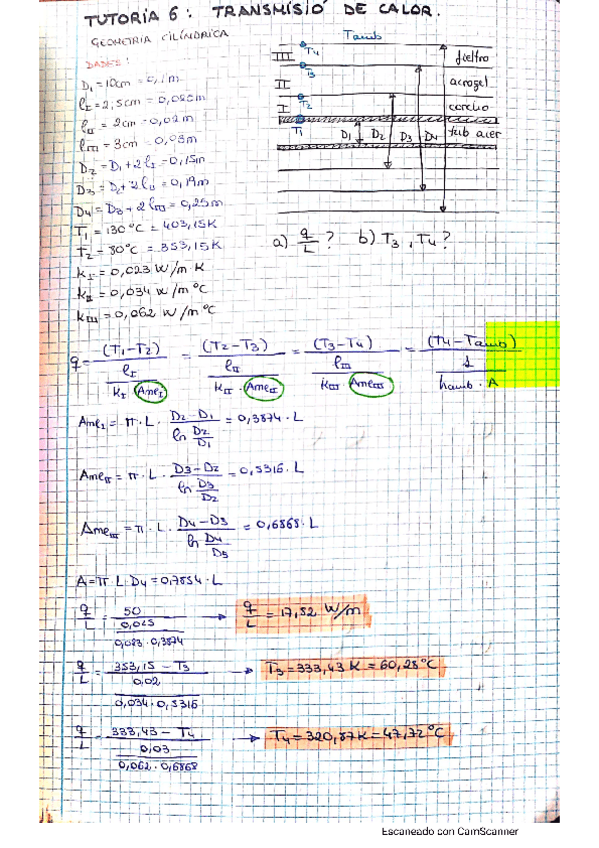 TUTORIA 6: TRANSMISIÓ DE CALOR.
GEOMETRIA CILÍNDRICA
DADES:
D₁ = 10cm = 0,1m
ℓI = 2,5cm = 0,025m
ℓII = 2cm = 0,02m
ℓIII = 3cm = 0,03m
D₂ = D₁ + 2ℓI = 0,15m
D₃ = D₂ + 2ℓII = 0,19m
D₄ = D₃ + 2ℓIII = 0,25m
T₁ = 130°C = 403,15K
T₂ = 80°C = 353,15K
kI = 0,023 W/m·K
kII = 0,034 W/m°C
kIII = 0,062 W/m°C
Tamb
III T₄ fieltro
T₃
II aerogel
I T₂ corcho
T₁ D₁ D₂ D₃ D₄ tub acer
a) q/L? b) T₃, T₄?
q = (T₁-T₂) / (ℓI / (kI · AmeI)) = (T₂-T₃) / (ℓII / (kII · AmeII)) = (T₃-T₄) / (ℓIII / (kIII · AmeIII)) = (T₄-Tamb) / (1 / (hamb · A))
AmeI = π · L · (D₂-D₁) / (ln D₂/D₁) = 0,3874 · L
AmeII = π · L · (D₃-D₂) / (ln D₃/D₂) = 0,5316 · L
AmeIII = π · L · (D₄-D₃) / (ln D₄/D₃) = 0,6868 · L
A = π · L · D₄ = 0,7854 · L
q/L = 50 / (0,025 / (0,023 · 0,3874)) → q/L = 17,82 W/m
q/L = (353,15 - T₃) / (0,02 / (0,034 · 0,5316)) → T₃ = 333,43 K = 60,28°C
q/L = (333,43 - T₄) / (0,03 / (0,062 · 0,6868)) → T₄ = 320,87K = 47,72°C
Escaneado con CamScanner